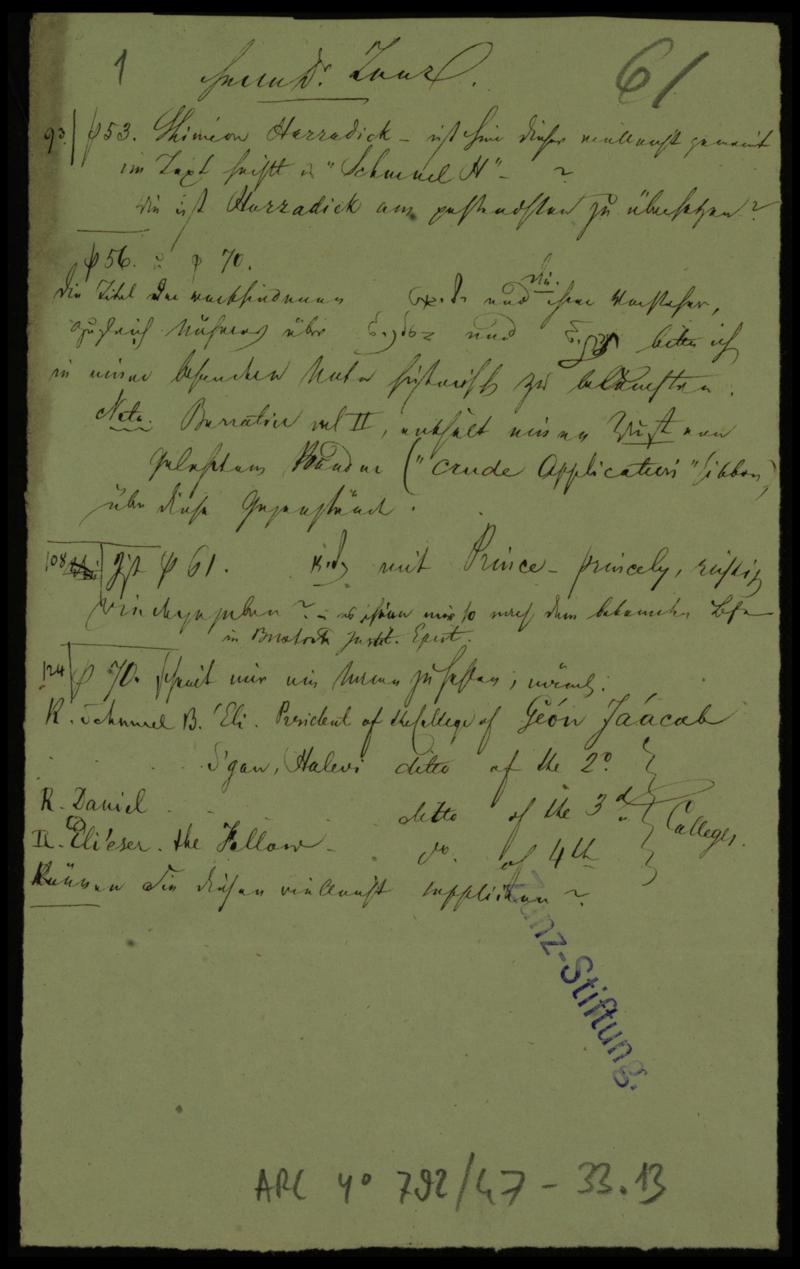 1
61
Herrn Dr. Zunz.
93. p 53. Shiméon Hazzadick – ist hier dieser vielleicht gemeint
im Text heißt es "Schmuel H" – ?
Wie ist Hazzadick am passendsten zu übersetzen?
p 56. p 70.
Die Titel der verschiedenen und die ihrer Vorsteher,
zugleich Näheres über und bitte ich
in einer besondern Note historisch zu beleuchten.
Nota. Barratier vol II, enthält einen Wust von
gelehrtem Plunder ("crude Application" Gibbon)
über diese Gegenstände.
108 Ist p 61. mit Prince – princely, richtig
wiedergegeben? – es schien mir so nach dem bekannten
in Buxtorfs Instit. Epist.
124 p 70. scheint mir ein Name zu fehlen, nämlich:
R. Schmuel B. 'Eli. President of the College of Geón Jáacob
S'gan, Halevi ditto of the 2º.
R. Daniel ditto of the 3d. Colleges.
R. Eli'eser. the Fellow – do. of 4th
Können Sie diesen vielleicht suppliren?
Zunz-Stiftung.
ARC 4º 792/47 – 33.13